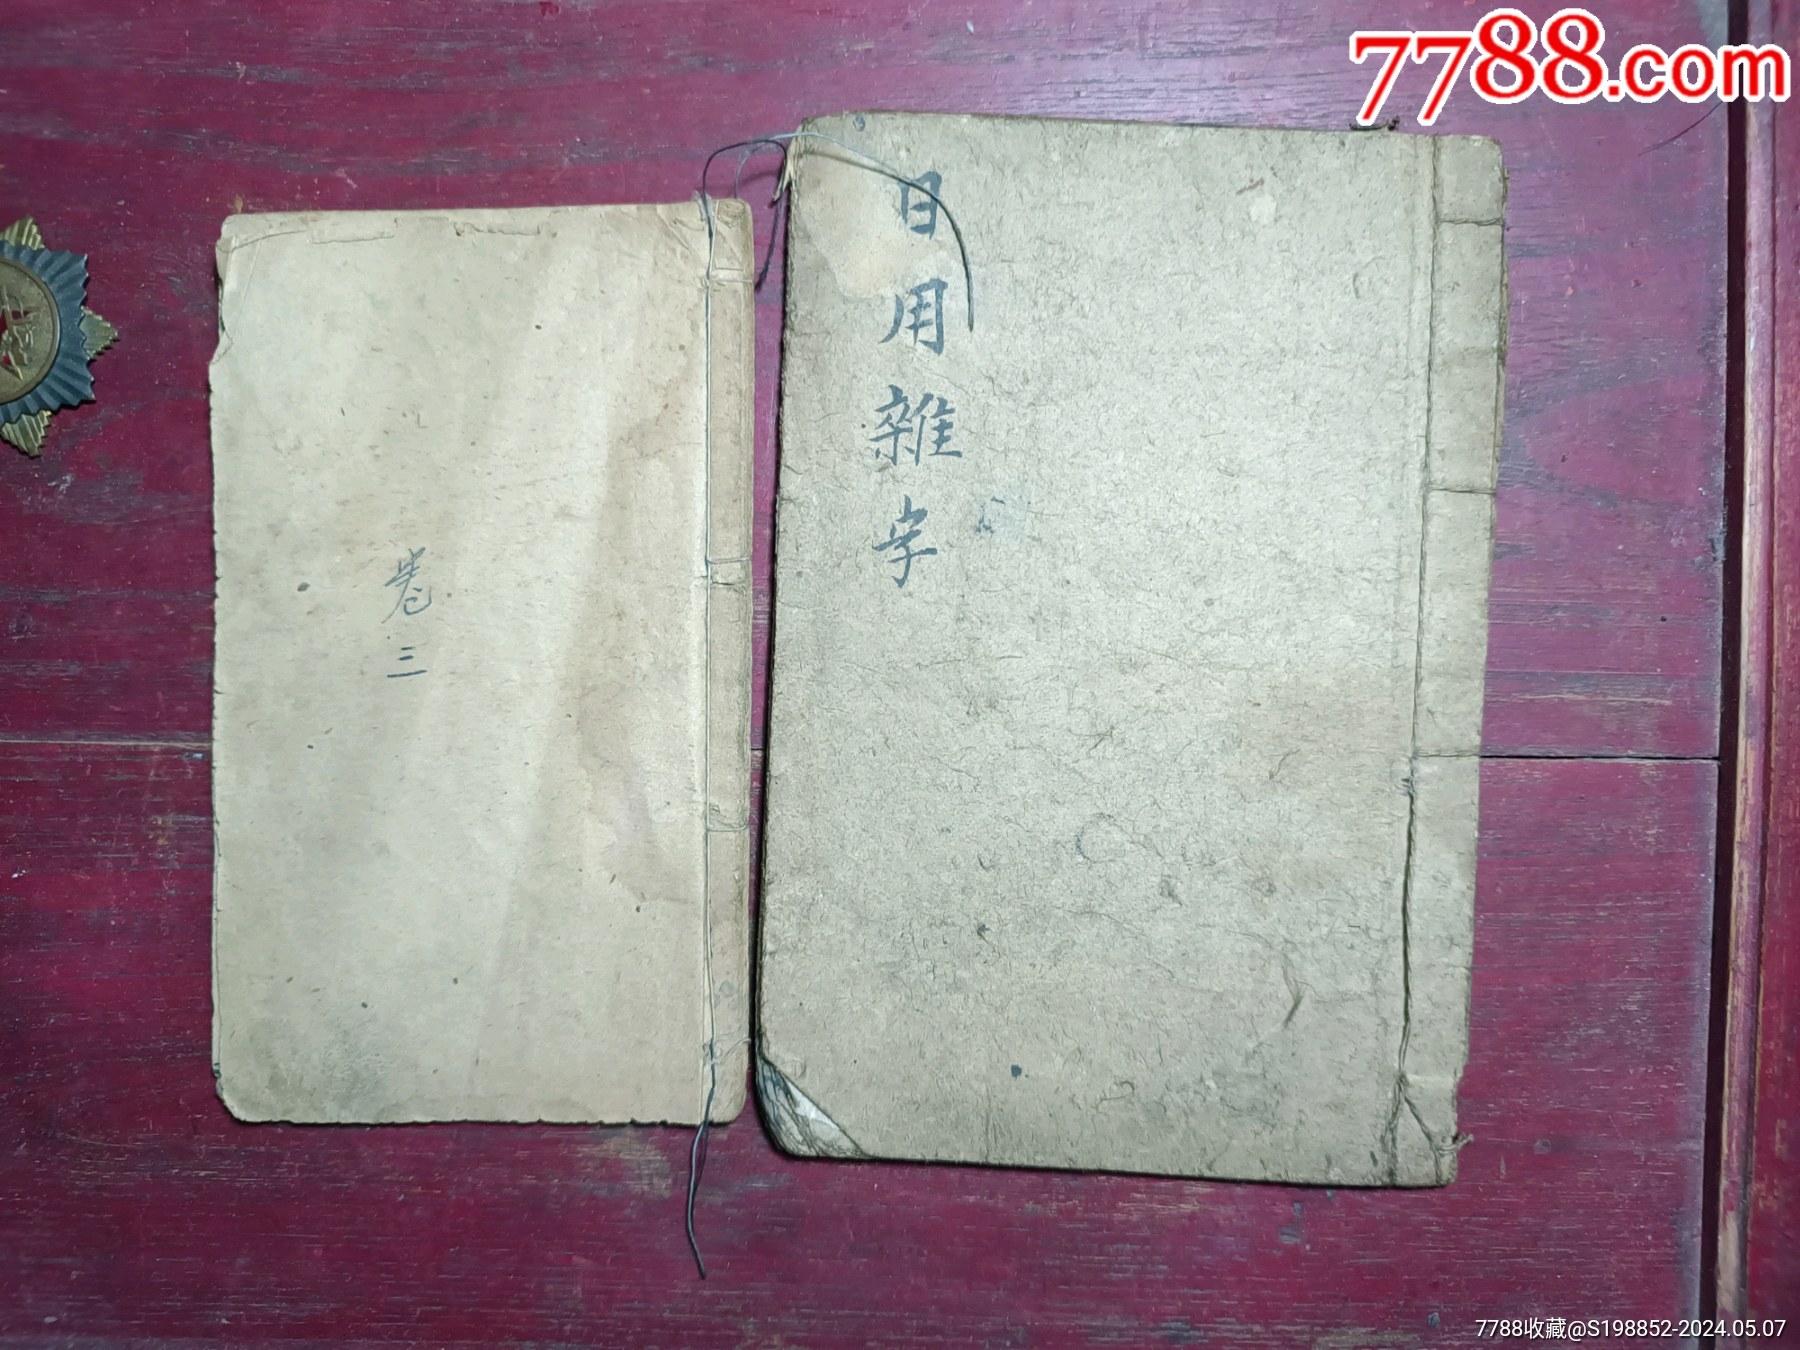 7788.com
日用雜字
卷三
7788收藏@S198852-2024.05.07